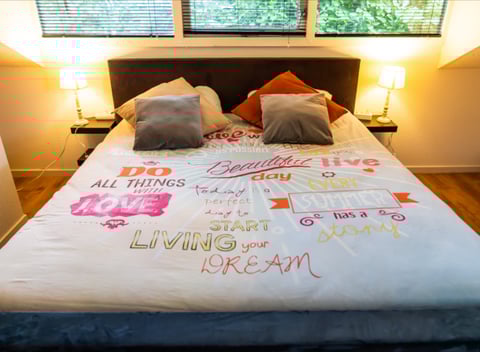 Beautiful
DO
ALL THINGS
WITH
LOVE
day
live
Today is a
perfect
day to
START
LIVING your
DREAM
EVERY
SUMMER
has a
story